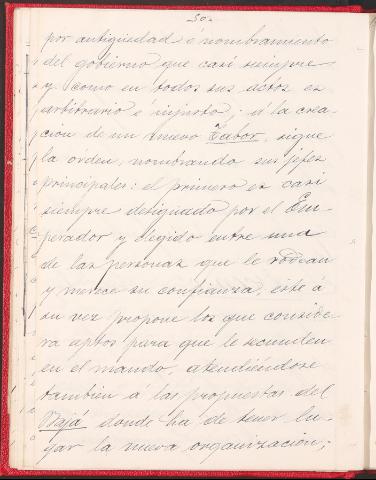 -50-
por antigüedad é nombramiento
del gobierno que casi siempre
y como en todos sus actos es
arbitrario é injusto; á la crea-
ción de un nuevo Tabor, sigue
la orden, nombrando sus jefes
principales: el primero es casi
siempre designado por el Em-
perador y elegido entre una
de las personas que le rodean
y merece su confianza, este á
su vez propone los que conside-
ra aptos para que le secunden
en el mando, atendiéndose
tambien á las propuestas del
Bajá donde ha de tener lu-
gar la nueva organización;